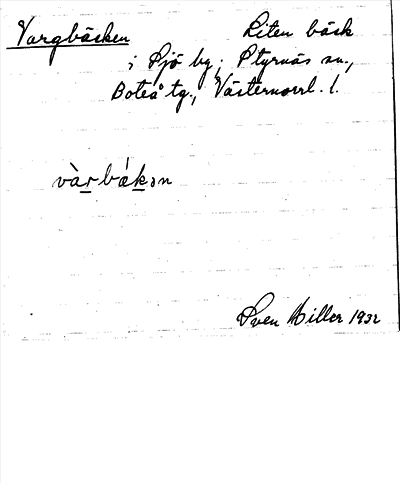 Vargbäcken Liten bäck
i Sjö by, Styrnäs sn.,
Boteå tg., Västernorrl. l.
vàrbák̲ən
Sven Miller 1932